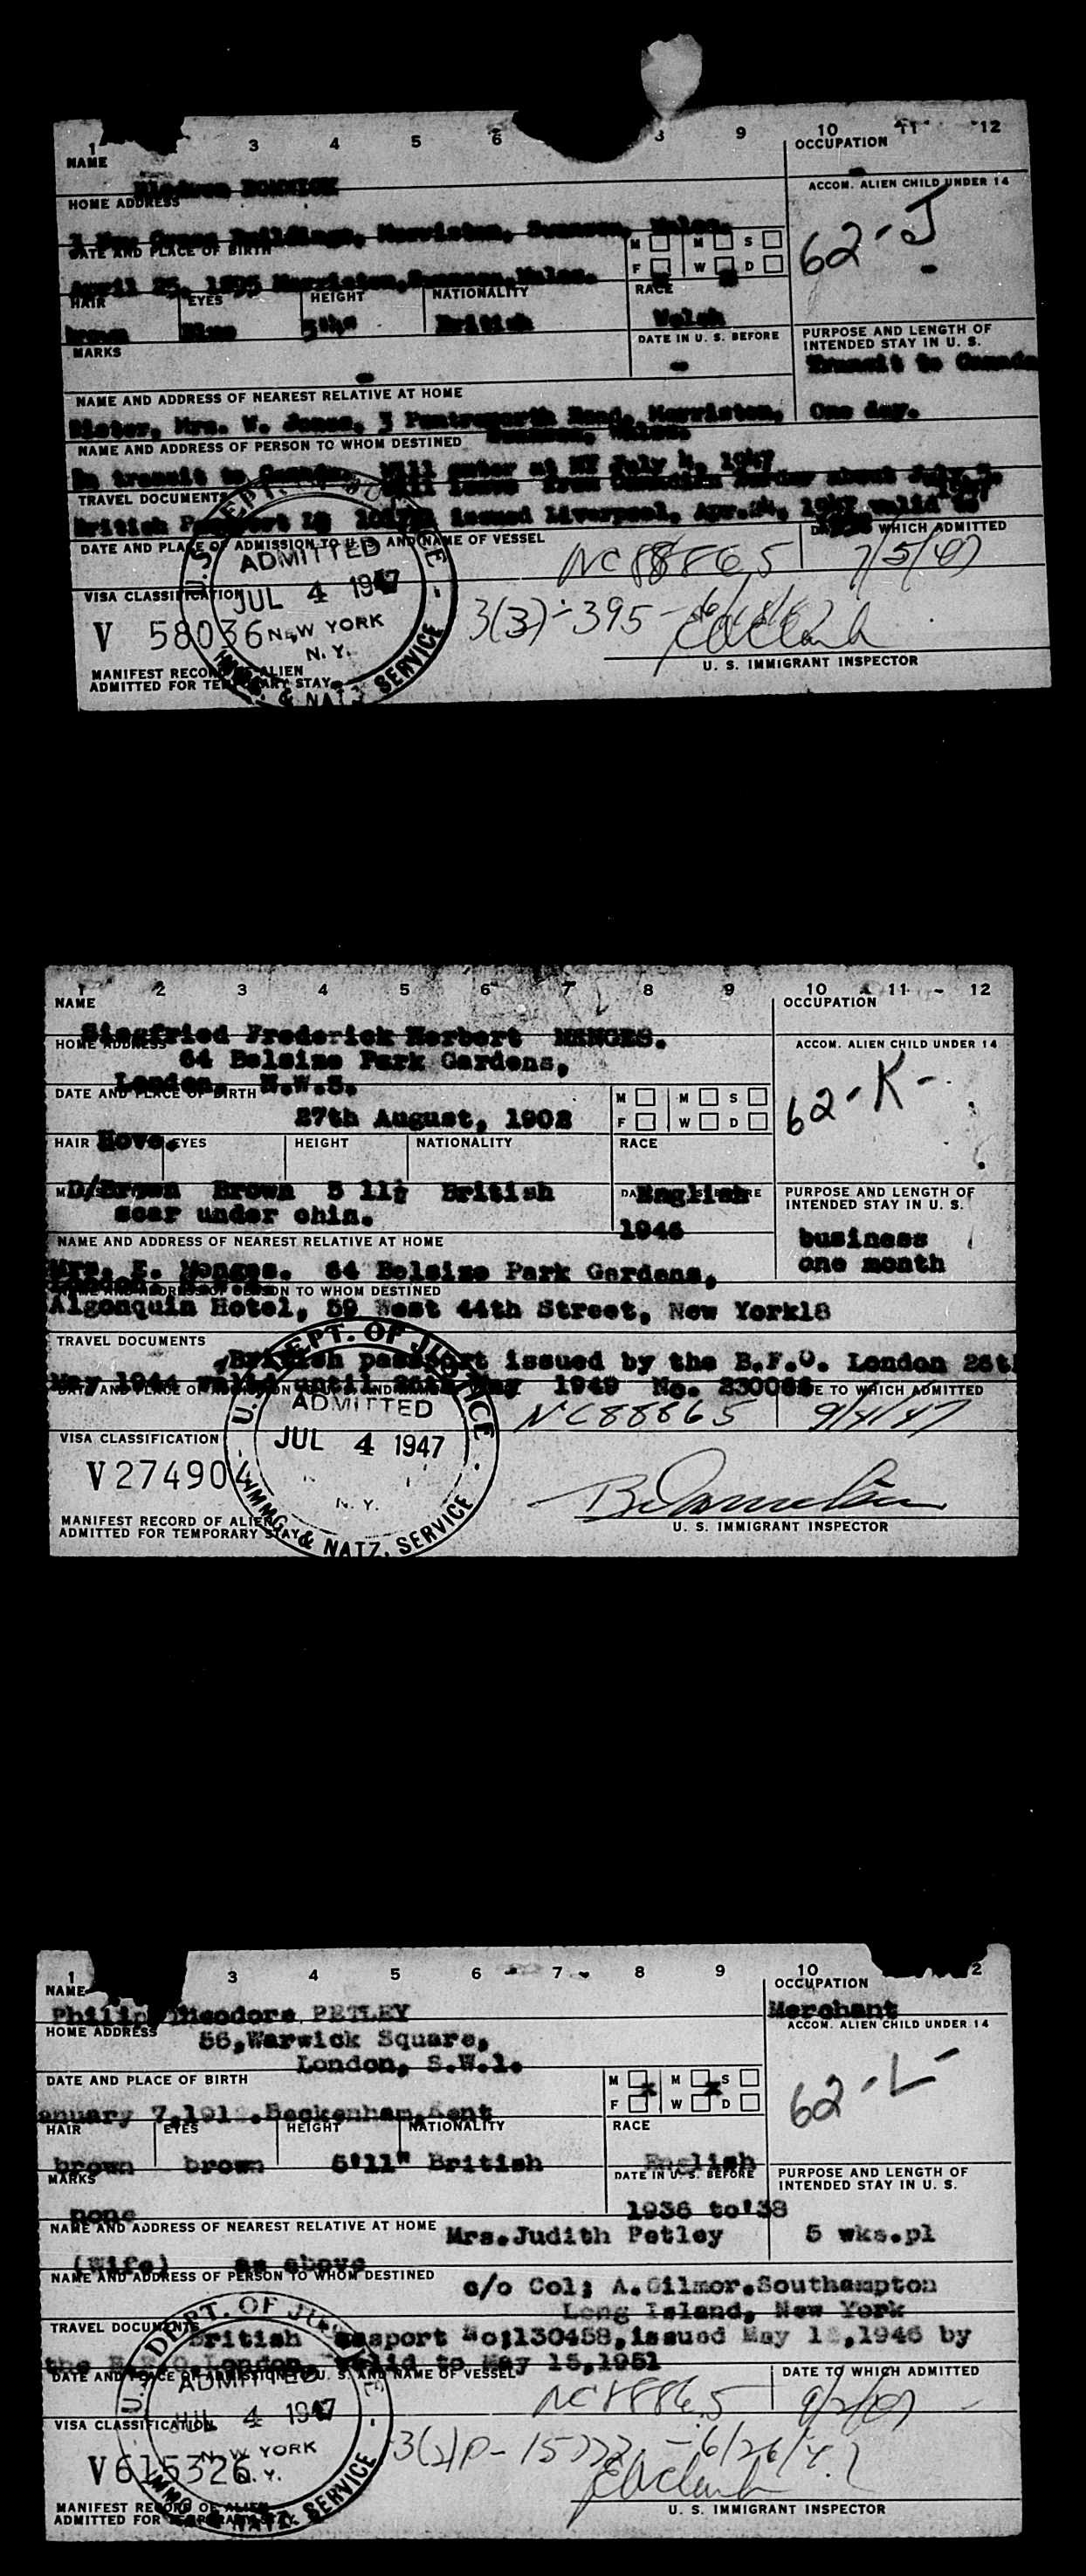 1 3 4 5 6 8 9 10 11 12
NAME
OCCUPATION
HOME ADDRESS
ACCOM. ALIEN CHILD UNDER 14
62-J
Buildings, Morriston, Swansea, Wales.
DATE AND PLACE OF BIRTH
M M S
F W D
April 25, 1895 Morriston, Swansea, Wales.
HAIR EYES HEIGHT NATIONALITY RACE
brown Blue British Welsh
MARKS
DATE IN U. S. BEFORE
PURPOSE AND LENGTH OF
INTENDED STAY IN U. S.
Transit to Canada
One day.
NAME AND ADDRESS OF NEAREST RELATIVE AT HOME
Sister, Mrs. W. Jones, 3 Road, Morriston,
Swansea, Wales.
NAME AND ADDRESS OF PERSON TO WHOM DESTINED
In transit to Canada. Will enter at NY July 4, 1947
Will leave from Canadian Border about July
TRAVEL DOCUMENTS
British Passport issued Liverpool, Apr.24, 1947 valid to
DATE AND PLACE OF ADMISSION TO U. S. AND NAME OF VESSEL
DATE TO WHICH ADMITTED
NC 88865 7/5/47
ADMITTED
JUL 4 1947
NEW YORK
N. Y.
VISA CLASSIFICATION
V 58036
3(3)-395
MANIFEST RECORD OF ALIEN
ADMITTED FOR TEMPORARY STAY
U. S. IMMIGRANT INSPECTOR
U.S. DEPT. OF JUSTICE
IMMG. & NATZ. SERVICE
1 2 3 4 5 6 7 8 9 10 11 12
NAME
OCCUPATION
Siegfried Frederick Herbert MANGES.
HOME ADDRESS
ACCOM. ALIEN CHILD UNDER 14
64 Belsize Park Gardens,
London, N.W.3.
62-K-
DATE AND PLACE OF BIRTH
27th August, 1902
M M S
F W D
Hove.
HAIR EYES HEIGHT NATIONALITY RACE
D/Brown Brown 5 11½ British English
scar under chin.
1946
PURPOSE AND LENGTH OF
INTENDED STAY IN U. S.
business
one month
NAME AND ADDRESS OF NEAREST RELATIVE AT HOME
Mrs. E. Manges. 64 Belsize Park Gardens,
London
NAME AND ADDRESS OF PERSON TO WHOM DESTINED
Algonquin Hotel, 59 West 44th Street, New York18
TRAVEL DOCUMENTS
British passport issued by the B.F.O. London 26th
May 1944 valid until 26th May 1949 No.
DATE TO WHICH ADMITTED
NC88865 9/4/47
U.S. DEPT. OF JUSTICE
ADMITTED
JUL 4 1947
N. Y.
IMMG. & NATZ. SERVICE
VISA CLASSIFICATION
V274904
MANIFEST RECORD OF ALIEN
ADMITTED FOR TEMPORARY STAY
U. S. IMMIGRANT INSPECTOR
1 3 4 5 6 7 8 9 10 2
NAME
OCCUPATION
Philip Theodore PETLEY
Merchant
HOME ADDRESS
ACCOM. ALIEN CHILD UNDER 14
56, Warwick Square,
London, S.W.1.
62-L-
DATE AND PLACE OF BIRTH
M x M x S
F W D
anuary 7,191 .Beckenham,Kent
HAIR EYES HEIGHT NATIONALITY RACE
brown brown 5'11" British English
MARKS
DATE IN U. S. BEFORE
none
1936 to'38
PURPOSE AND LENGTH OF
INTENDED STAY IN U. S.
5 wks.pl
NAME AND ADDRESS OF NEAREST RELATIVE AT HOME
Mrs.Judith Petley
(Wife) as above
NAME AND ADDRESS OF PERSON TO WHOM DESTINED
c/o Col; A.Gilmor.Southampton
Long Island, New York
TRAVEL DOCUMENTS
British Passport No;130458,issued May 1 ,1946 by
the London, valid to May 15,1951
DATE AND PLACE OF ADMISSION TO U. S. AND NAME OF VESSEL
DATE TO WHICH ADMITTED
NC 88865 9/2/47
U.S. DEPT. OF JUSTICE
ADMITTED
JUL 4 1947
NEW YORK
N. Y.
IMMG. & NATZ. SERVICE
VISA CLASSIFICATION
V615326
6/26/47
MANIFEST RECORD OF ALIEN
ADMITTED FOR TEMPORARY STAY
U. S. IMMIGRANT INSPECTOR